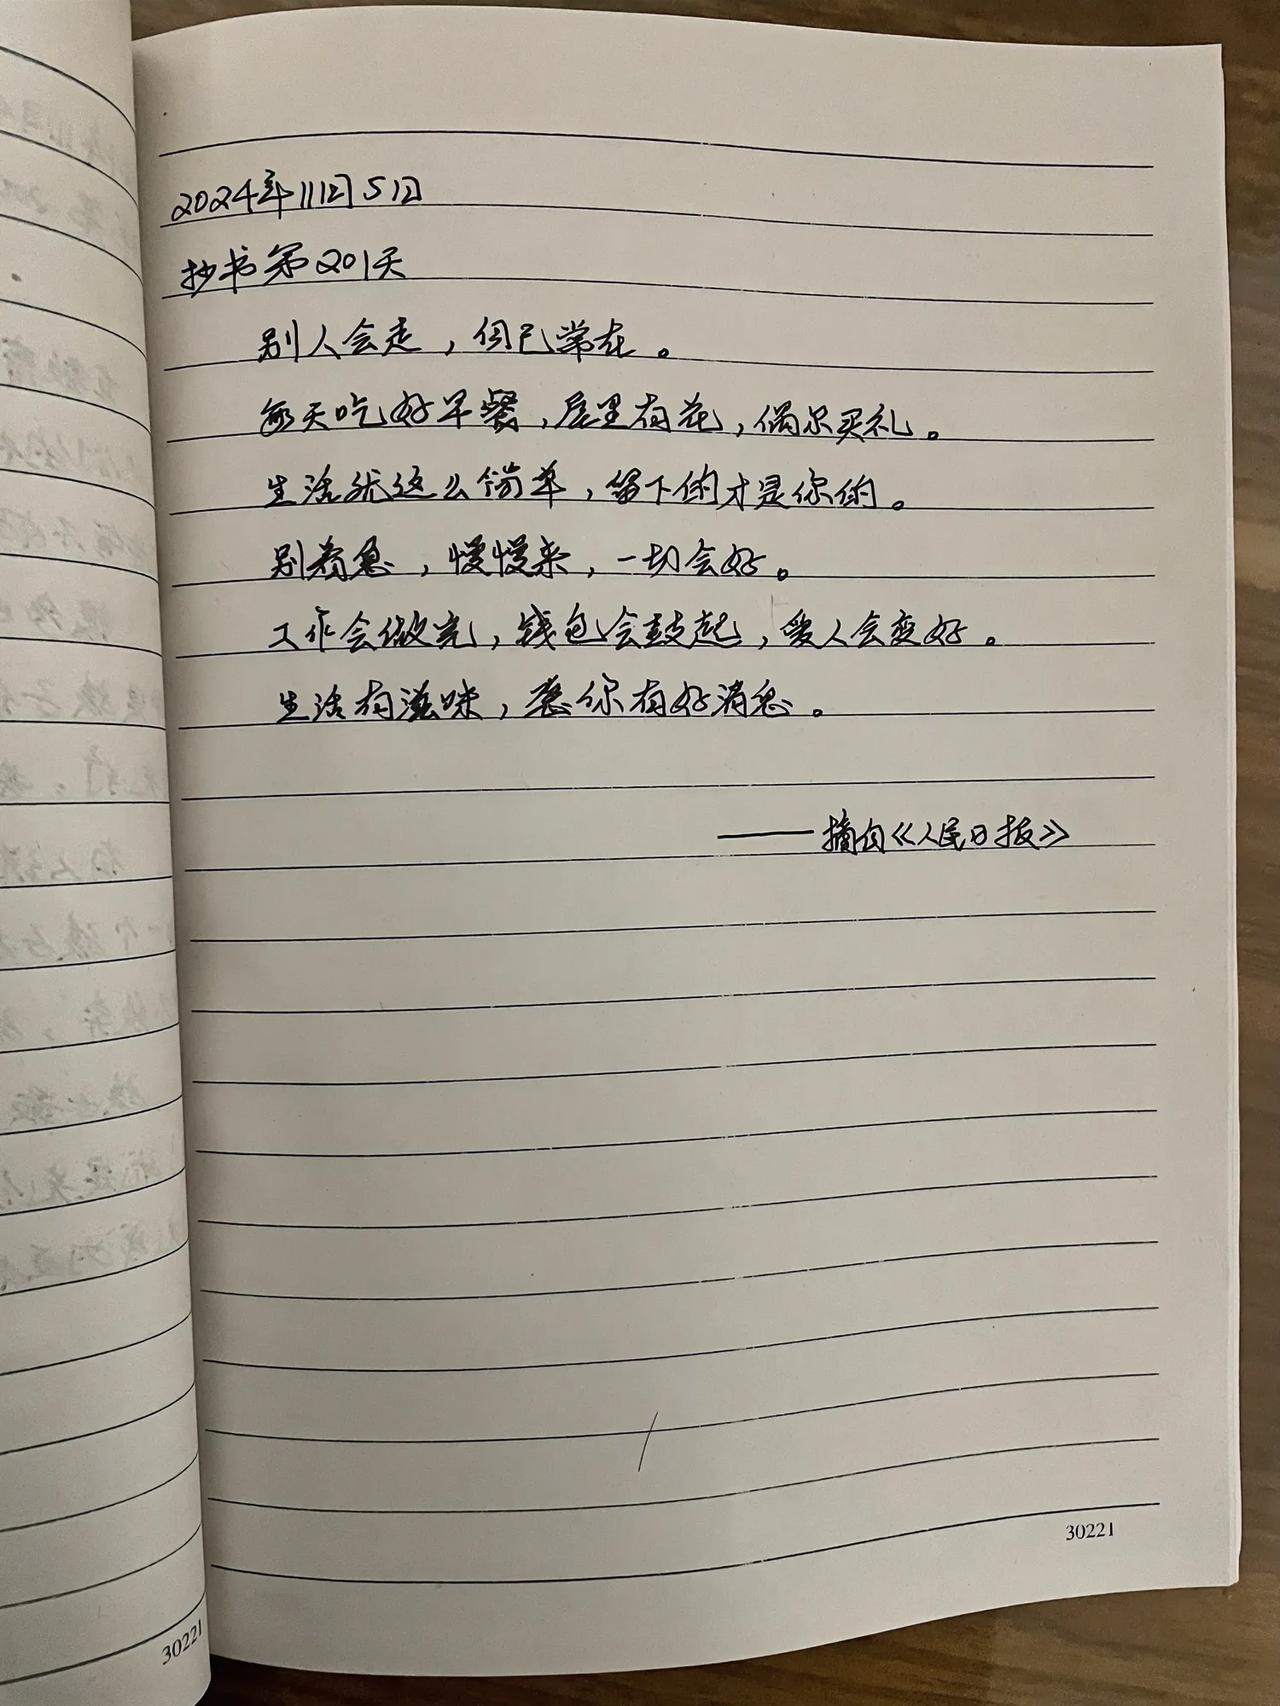 2024年11月5日
抄书第201天
别人会走，但己常在。
每天吃好早餐，屋里有花，偶尔买礼。
生活就这么简单，留下的才是你的。
别着急，慢慢来，一切会好。
工作会做完，钱包会鼓起，爱人会变好。
生活有滋味，愿你有好消息。
——摘自《人民日报》
30221
30221